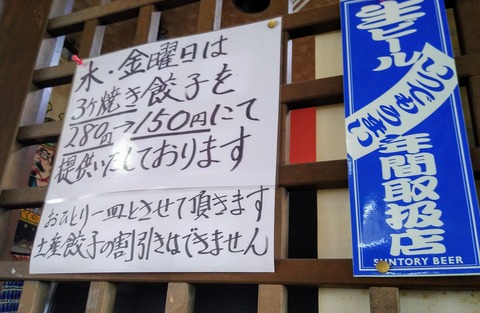 水・金曜日は
3ヶ焼き餃子を
280円→150円にて
提供いたしております
おひとり一皿とさせて頂きます
土産餃子の割引きはできません
生ビール
いつでもうまい
年間取扱店
SUNTORY BEER